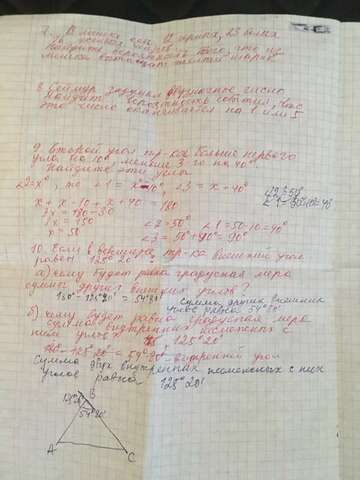 7. В мешке
Найдите вероятность того, что из
8. Теймур задумал двузначное число
Найдите вероятность события, что
это число оканчивается на 1 или 5
9. Второй угол тр-ка больше первого
угла на 10°, меньше 3-го на 40°
Найдите эти углы
∠2=x°, то ∠1 = x-10°, ∠3 = x+40°
x + x - 10 + x + 40 = 180
3x = 180-30
3x = 150
x = 50
∠2=50° ∠1=50-10=40°
∠3 = 50°+40°=90°
∠2=50°
∠1=50-10=40
10. Если в вершине тр-ка внешний угол
равен 125°20'
а) чему будет равна градусная мера
суммы других внешних углов?
180°-125°20'=54°40'
Сумма других внешних
углов равна 54°40'
б) чему будет равна градусная мера
суммы внутренних несмежных с
ним углов 125°20'
180°-125°20'=54°40'-внутренний угол
Сумма двух внутренних несмежных с ним
углов равна 125°20'
125°20'
B
54°40'
A
C